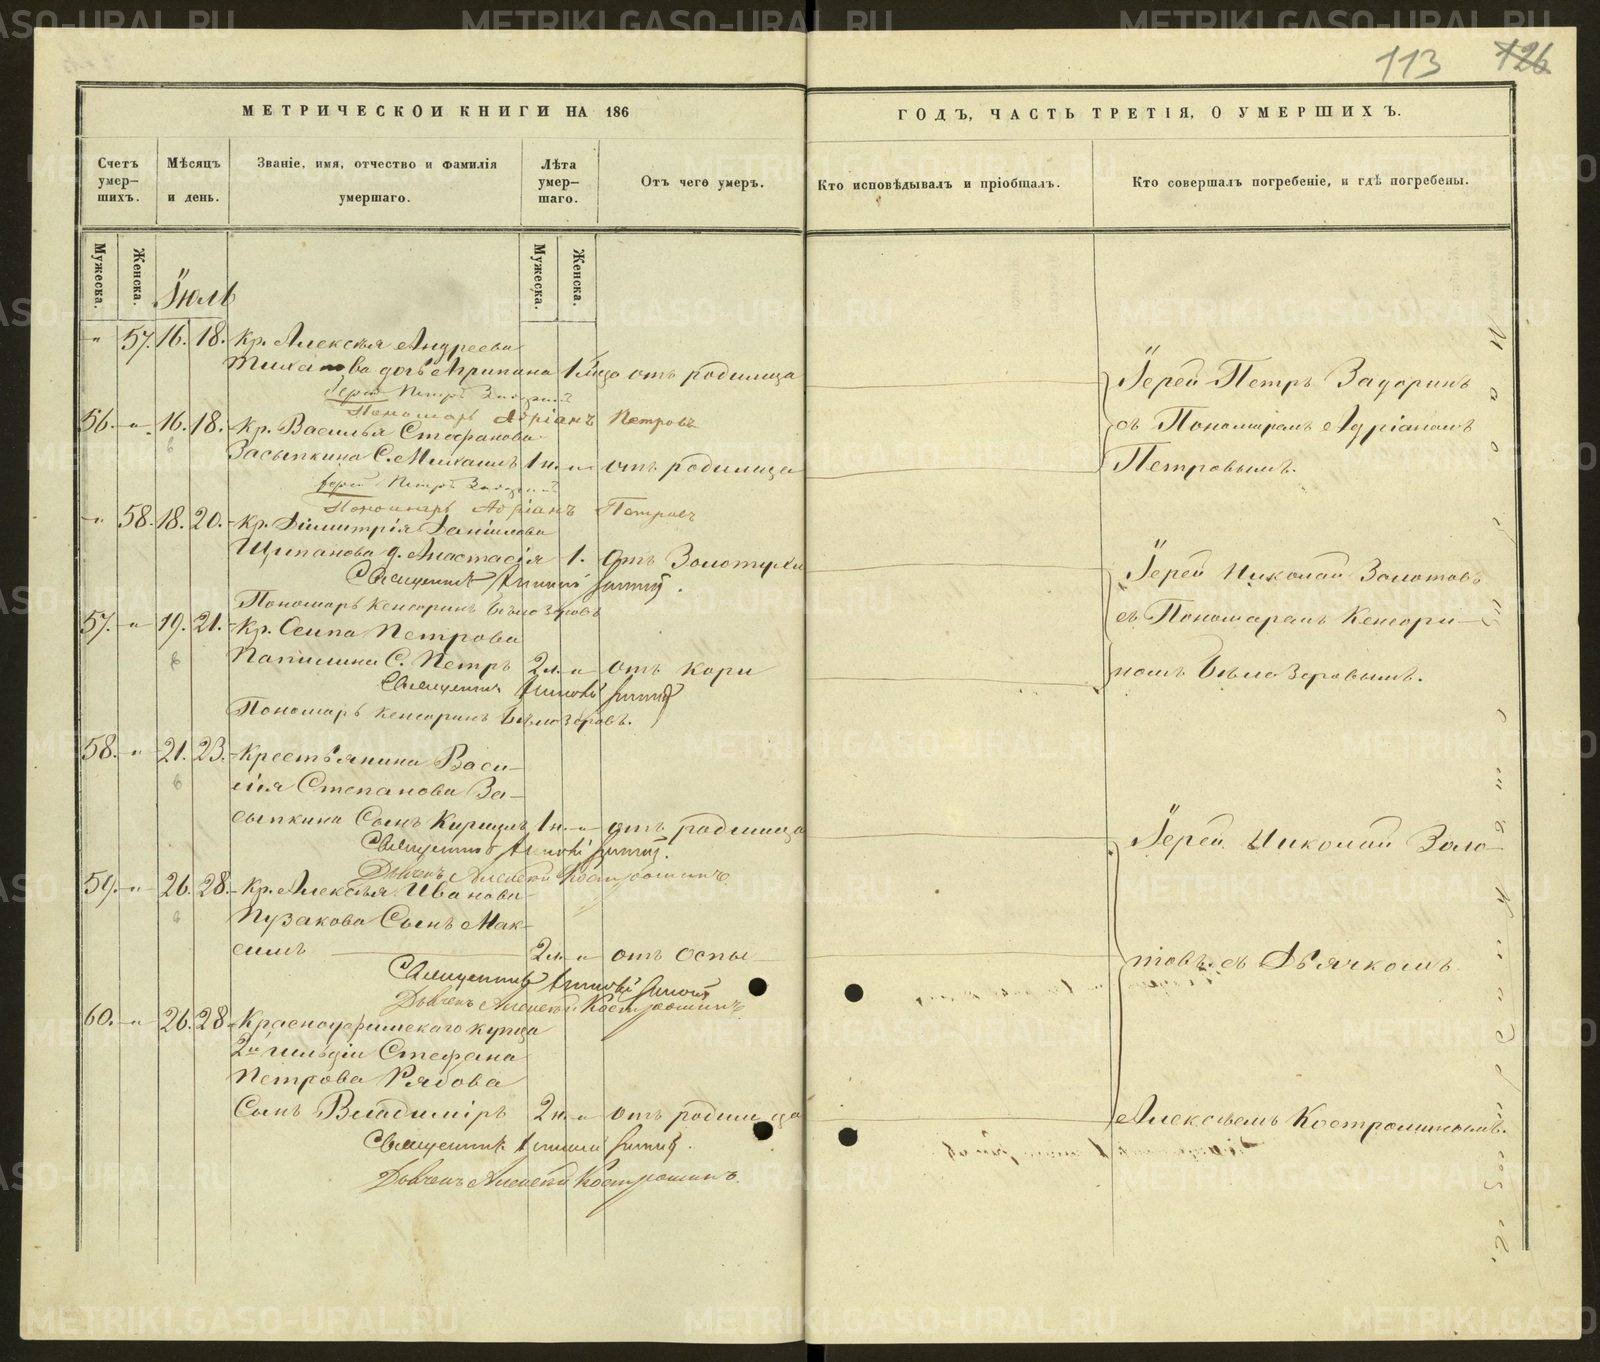 113 126
МЕТРИЧЕСКОЙ КНИГИ НА 186
ГОДЪ, ЧАСТЬ ТРЕТІЯ, О УМЕРШИХЪ.
Счетъ умершихъ.
Мѣсяцъ и день.
Званіе, имя, отчество и фамилія
умершаго.
Лѣта умершаго.
Отъ чего умеръ.
Кто исповѣдывалъ и пріобщалъ.
Кто совершалъ погребеніе, и гдѣ погребены.
Мужеска. Женска.
Мужеска. Женска.
Іюль
" 57. 16. 18. Кр. Алексѣя Андреева
дочь Агрипина 1 отъ родимца
Іерей Петръ Задоринъ
Пономарь Адріанъ Петровъ
56. " 16. 18. Кр. Василья Стефанова
Засыпкина С. Михаилъ 1 н. " отъ родимца
Іерей Петръ Задоринъ
Пономарь Адріанъ Петровъ
Іерей Петръ Задоринъ
съ Пономаремъ Адріаномъ
Петровымъ.
" 58. 18. 20. Кр. Димитрія Даніилова
Щипанова д. Анастасія 1. Отъ Золотухи
Священникъ
Пономарь Кенсоринъ Бѣлозеровъ
57. " 19. 21. Кр. Осипа Петрова
Папилина С. Петръ 2 " отъ кори
Священникъ
Пономарь Кенсоринъ Бѣлозеровъ.
Іерей Николай Золотовъ
съ Пономаремъ Кенсори-
номъ Бѣлозеровымъ.
58. " 21. 23. Крестьянина Васи-
лія Степанова За-
сыпкина Сынъ Кирилъ 1 н. " отъ родимца
Священникъ
Дьячекъ Алексѣй Костроминъ
59. " 26. 28. Кр. Алексѣя Иванова
Пузакова Сынъ Мак-
симъ 2 " отъ оспы
Священникъ
Дьячекъ Алексѣй Костроминъ
60. " 26. 28. Красноуфимскаго купца
2й гильдіи Стефана
Петрова Рябова
Сынъ Владиміръ 2 н. " отъ родимца
Священникъ
Дьячекъ Алексѣй Костроминъ.
Іерей Николай Золо-
товъ съ Дьячкомъ
Алексѣемъ Костроминымъ.
METRIKI.GASO-URAL.RU